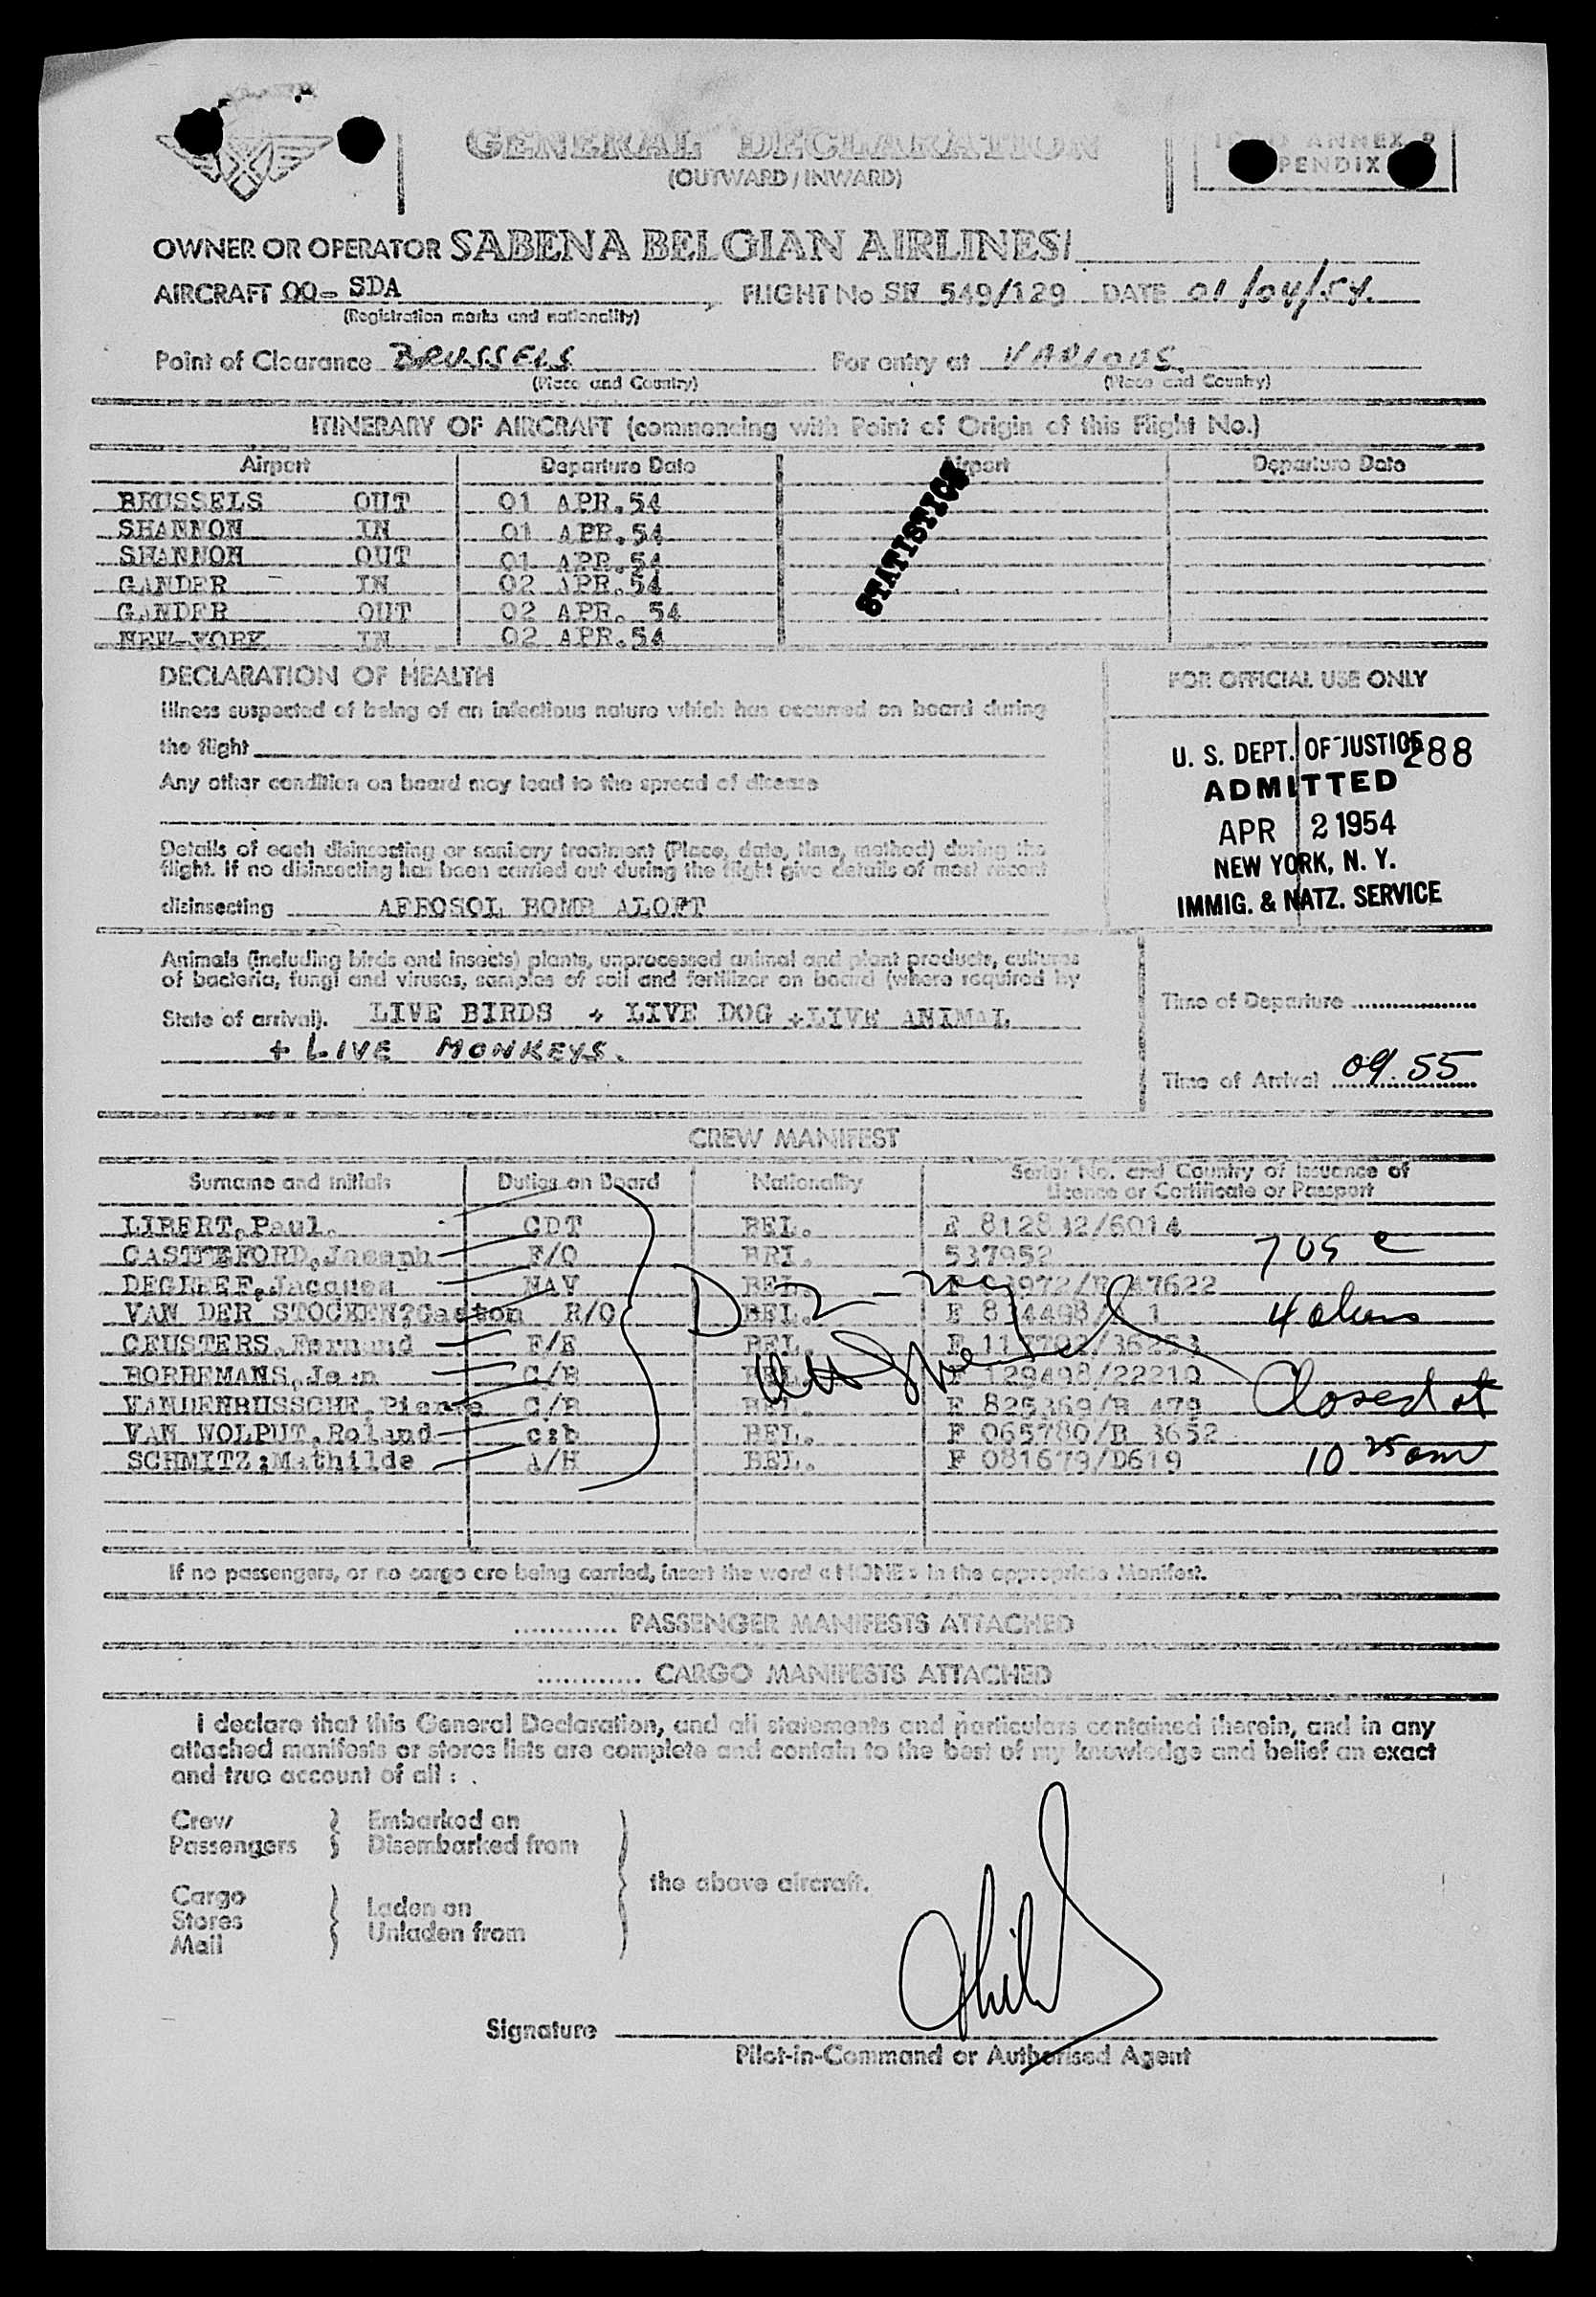 GENERAL DECLARATION
(OUTWARD / INWARD)
ANNEX 9
PENDIX
OWNER OR OPERATOR SABENA BELGIAN AIRLINES/
AIRCRAFT OO- SDA FLIGHT No SN 549/129 DATE 01/04/54.
(Registration marks and nationality)
Point of Clearance BRUSSELS For entry at VARIOUS.
(Place and Country) (Place and Country)
ITINERARY OF AIRCRAFT (commencing with Point of Origin of this Flight No.)
Airport Departure Date Airport Departure Date
BRUSSELS OUT 01 APR.54
SHANNON IN 01 APR.54
SHANNON OUT 01 APR.54
GANDER IN 02 APR.54
GANDER OUT 02 APR. 54
NEW-YORK IN 02 APR.54
STATISTICS
DECLARATION OF HEALTH
FOR OFFICIAL USE ONLY
Illness suspected of being of an infectious nature which has occurred on board during
the flight
Any other condition on board may lead to the spread of disease
Details of each disinsecting or sanitary treatment (Place, date, time, method) during the
flight. If no disinsecting has been carried out during the flight give details of most recent
disinsecting AEROSOL BOMB ALOFT
U. S. DEPT. OF JUSTICE 288
ADMITTED
APR 2 1954
NEW YORK, N. Y.
IMMIG. & NATZ. SERVICE
Animals (including birds and insects) plants, unprocessed animal and plant products, cultures
of bacteria, fungi and viruses, samples of soil and fertilizer on board (where required by
State of arrival). LIVE BIRDS + LIVE DOG +LIVE ANIMAL
+ LIVE MONKEYS.
Time of Departure
Time of Arrival 09.55
CREW MANIFEST
Surname and Initials Duties on Board Nationality Serial No. and Country of Issuance of
Licence or Certificate or Passport
LIBERT,Paul. CDT BEL. E 812832/6014
CASTLEFORD,Joseph F/O BRI. 537952
DEGREEF,Jacques NAV BEL.
VAN DER STOCKEN?Gaston R/O BEL.
CEUSTERS,Fernand F/E BEL.
BORREMANS,Jean C/B BEL. 129498/22210
VANDENBUSSCHE,Pierre C/B BEL. E 825369/B 479
VAN WOLPUT,Roland c:b BEL. F 065780/B 3652
SCHMITZ;Mathilde A/H BEL. F 081679/D619
D-2
4 aliens
Closed at
10 25 am
If no passengers, or no cargo are being carried, insert the word « NONE » in the appropriate Manifest.
............ PASSENGER MANIFESTS ATTACHED
............ CARGO MANIFESTS ATTACHED
I declare that this General Declaration, and all statements and particulars contained therein, and in any
attached manifests or stores lists are complete and contain to the best of my knowledge and belief an exact
and true account of all :
Crew Embarked on
Passengers Disembarked from
the above aircraft.
Cargo Laden on
Stores Unladen from
Mail
Signature
Pilot-in-Command or Authorised Agent